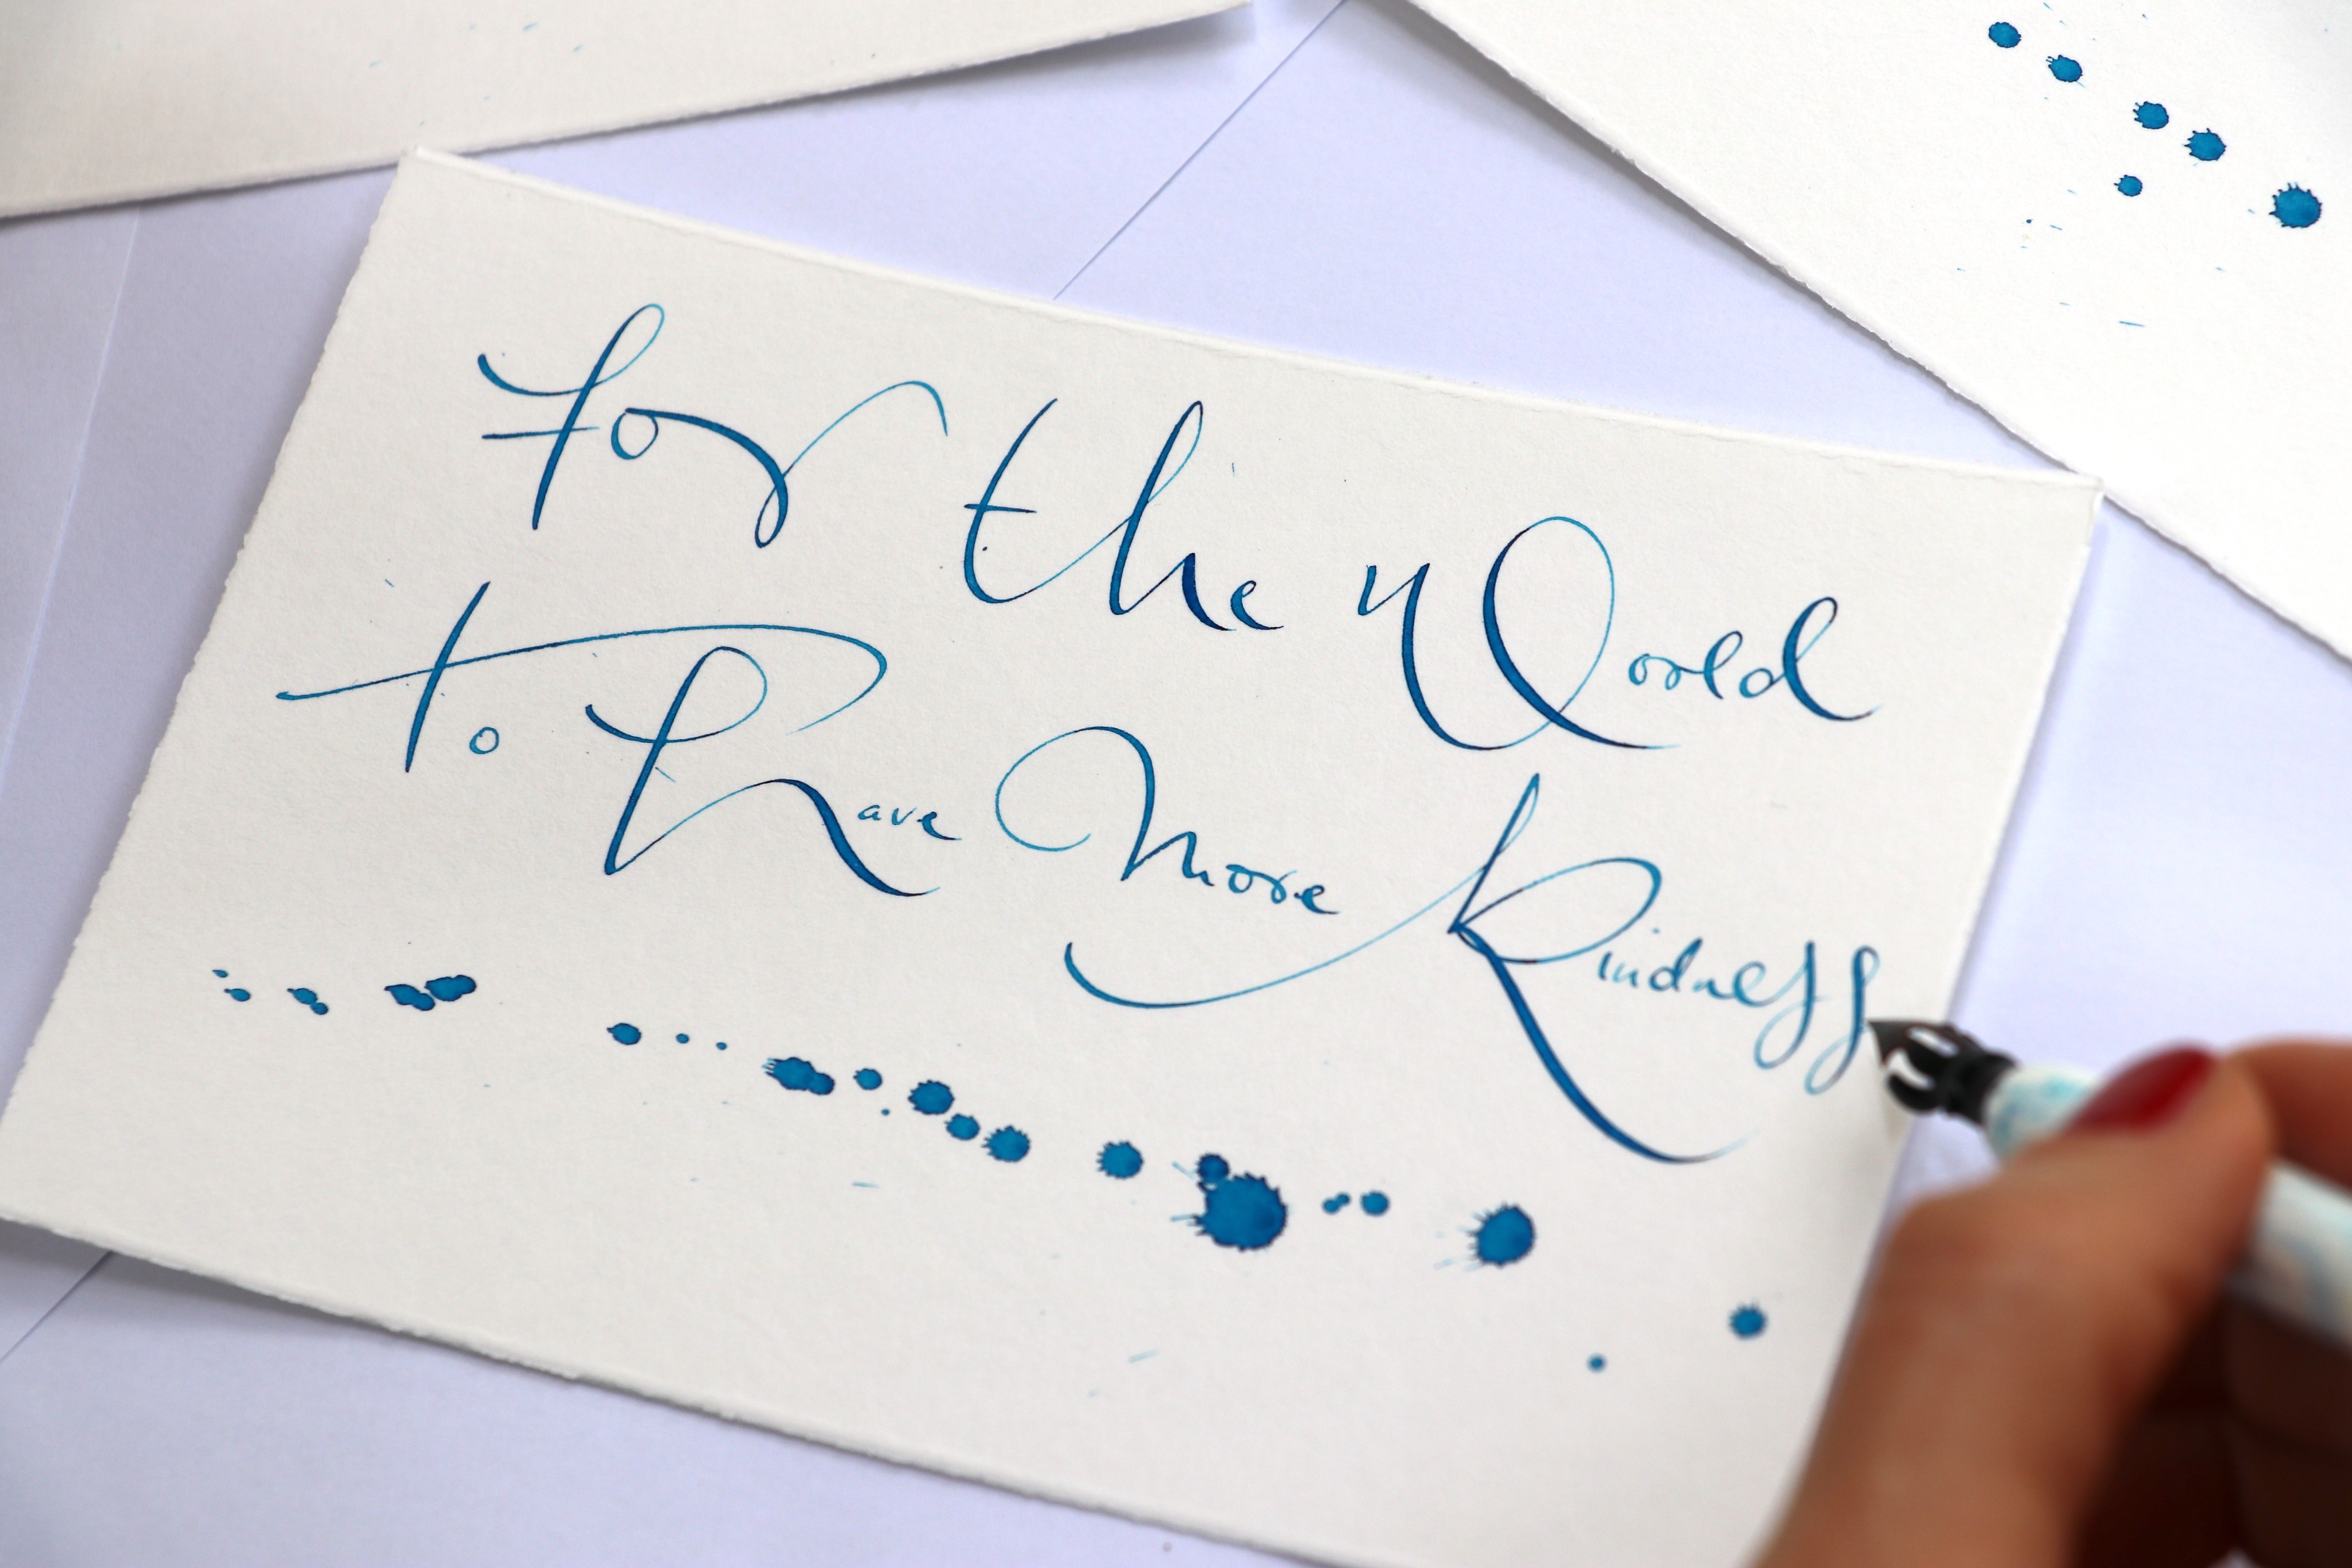 For the World
to Have More Kindness